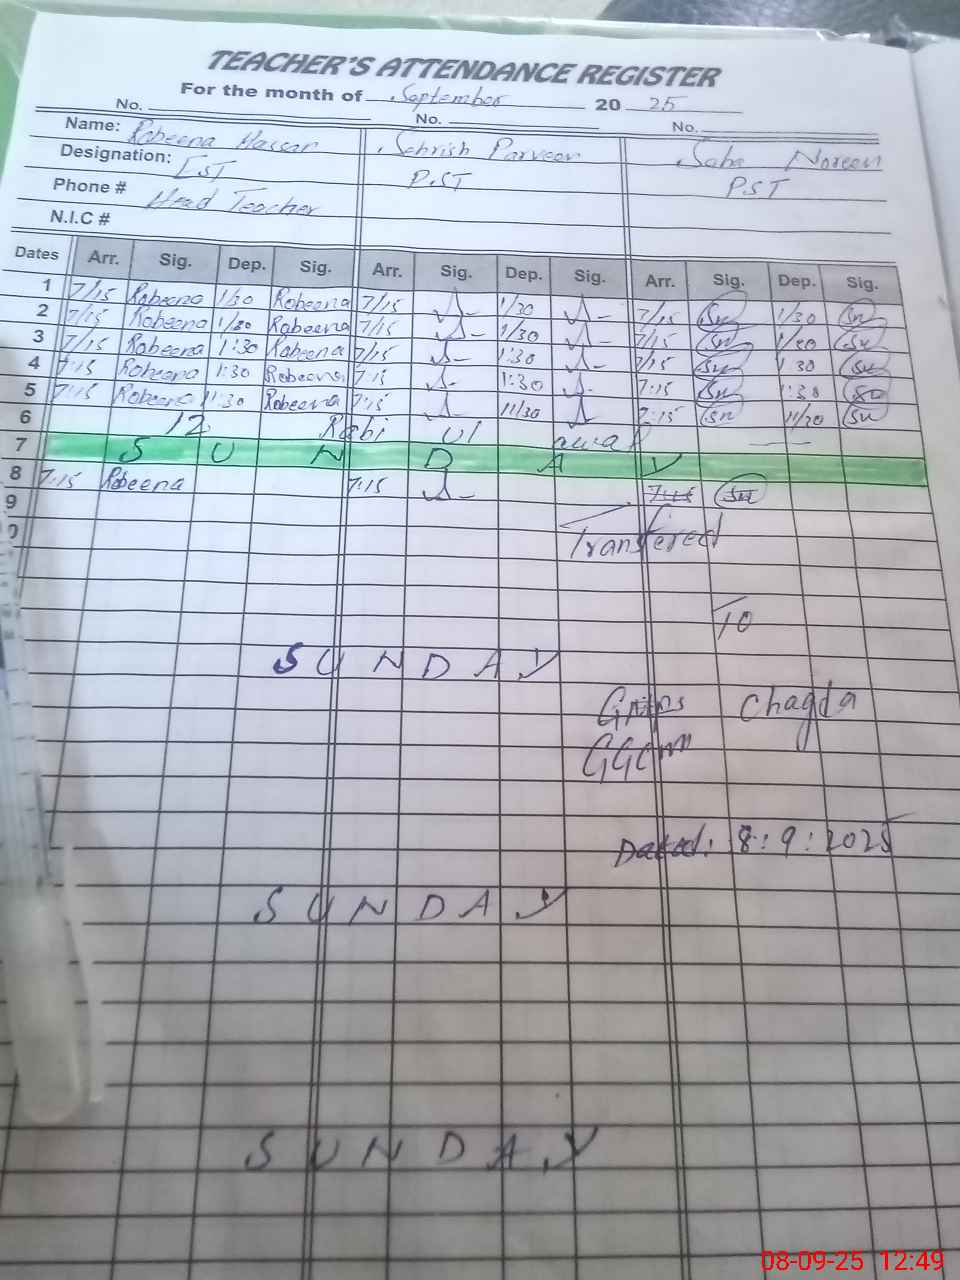 TEACHER'S ATTENDANCE REGISTER
For the month of September 20 25
No. No. No.
Name: Robeena Hassan Sehrish Parveen Saba Noreen
Designation: EST P.ST P.ST
Phone # Head Teacher
N.I.C #
Dates Arr. Sig. Dep. Sig. Arr. Sig. Dep. Sig. Arr. Sig. Dep. Sig.
1 7/15 Robeena 1/30 Robeena 7/15 1/30 7/15 Sn 1/30 Sn
2 7/15 Robeena 1/30 Robeena 7/15 1/30 7/15 Sn 1/30 Sn
3 7/15 Robeena 1:30 Robeena 7/15 1:30 7/15 Sn 1 30 Sn
4 7:15 Robeena 1:30 Robeena 7:15 1:30 7:15 Sn 1:30 Sn
5 7:15 Robeena 11:30 Robeena 7:15 11/30 7:15 Sn 11/30 Sn
6 12 Rabi Ul awal
7 S U N D A Y
8 7:15 Robeena 7:15 7:15 Sn
9
0
Transfered
To
S U N D A Y
Chagda
Dated: 8:9:2025
S U N D A Y
S U N D A Y
08-09-25 12:49